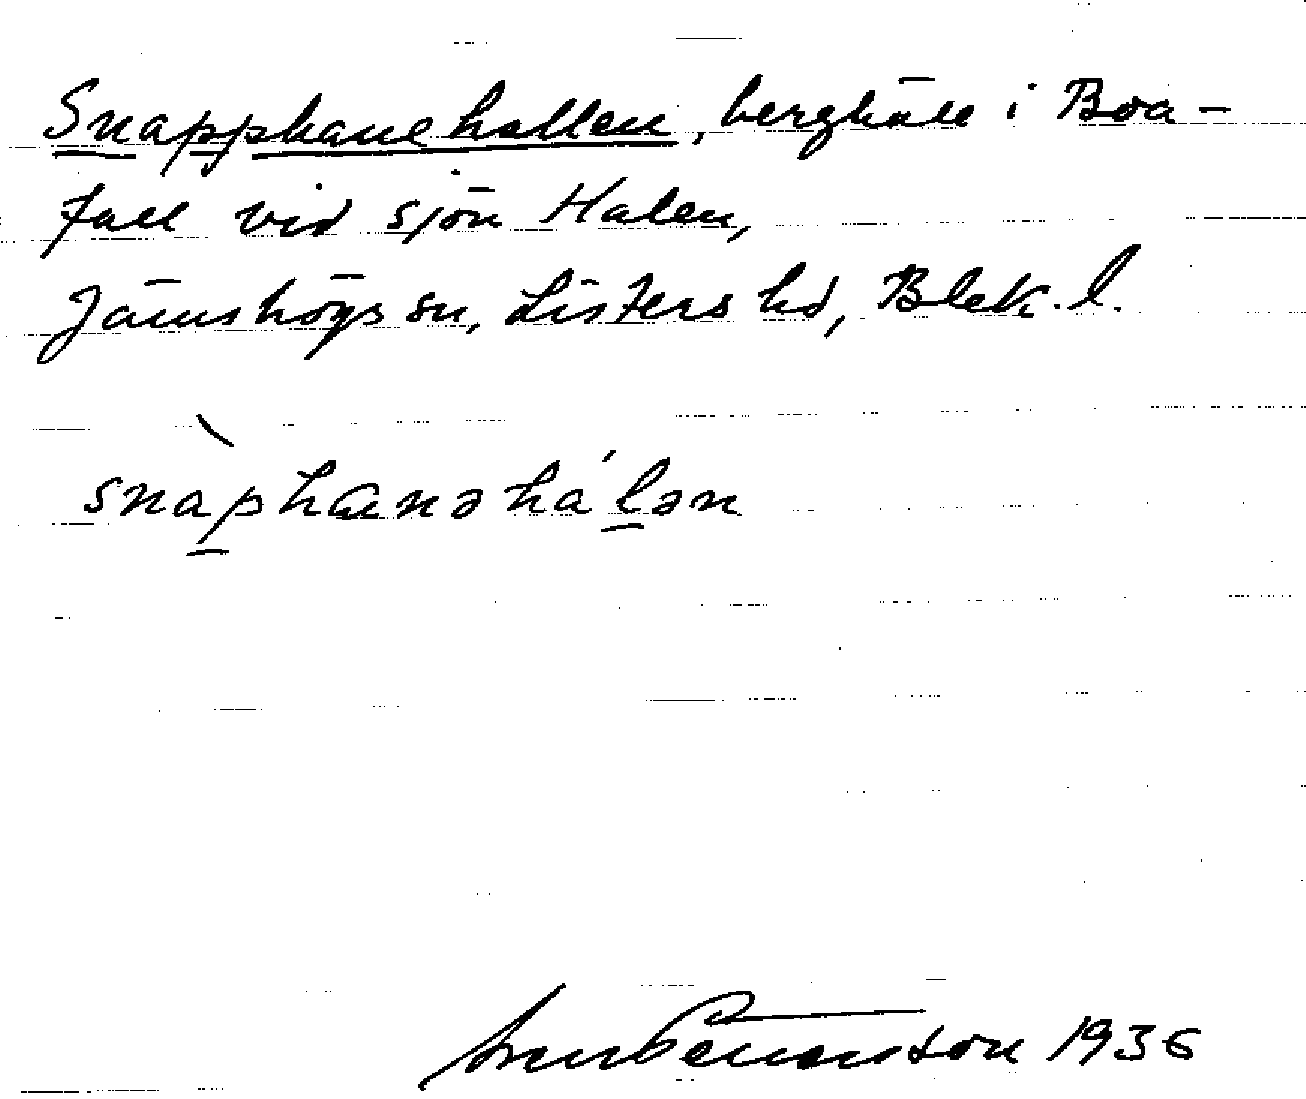 Snapphanehallen, berghäll i Boa-
fall vid sjön Halen,
Jämshögs sn, Listers hd, Blek. l.
snàphanəhá'lən
1936